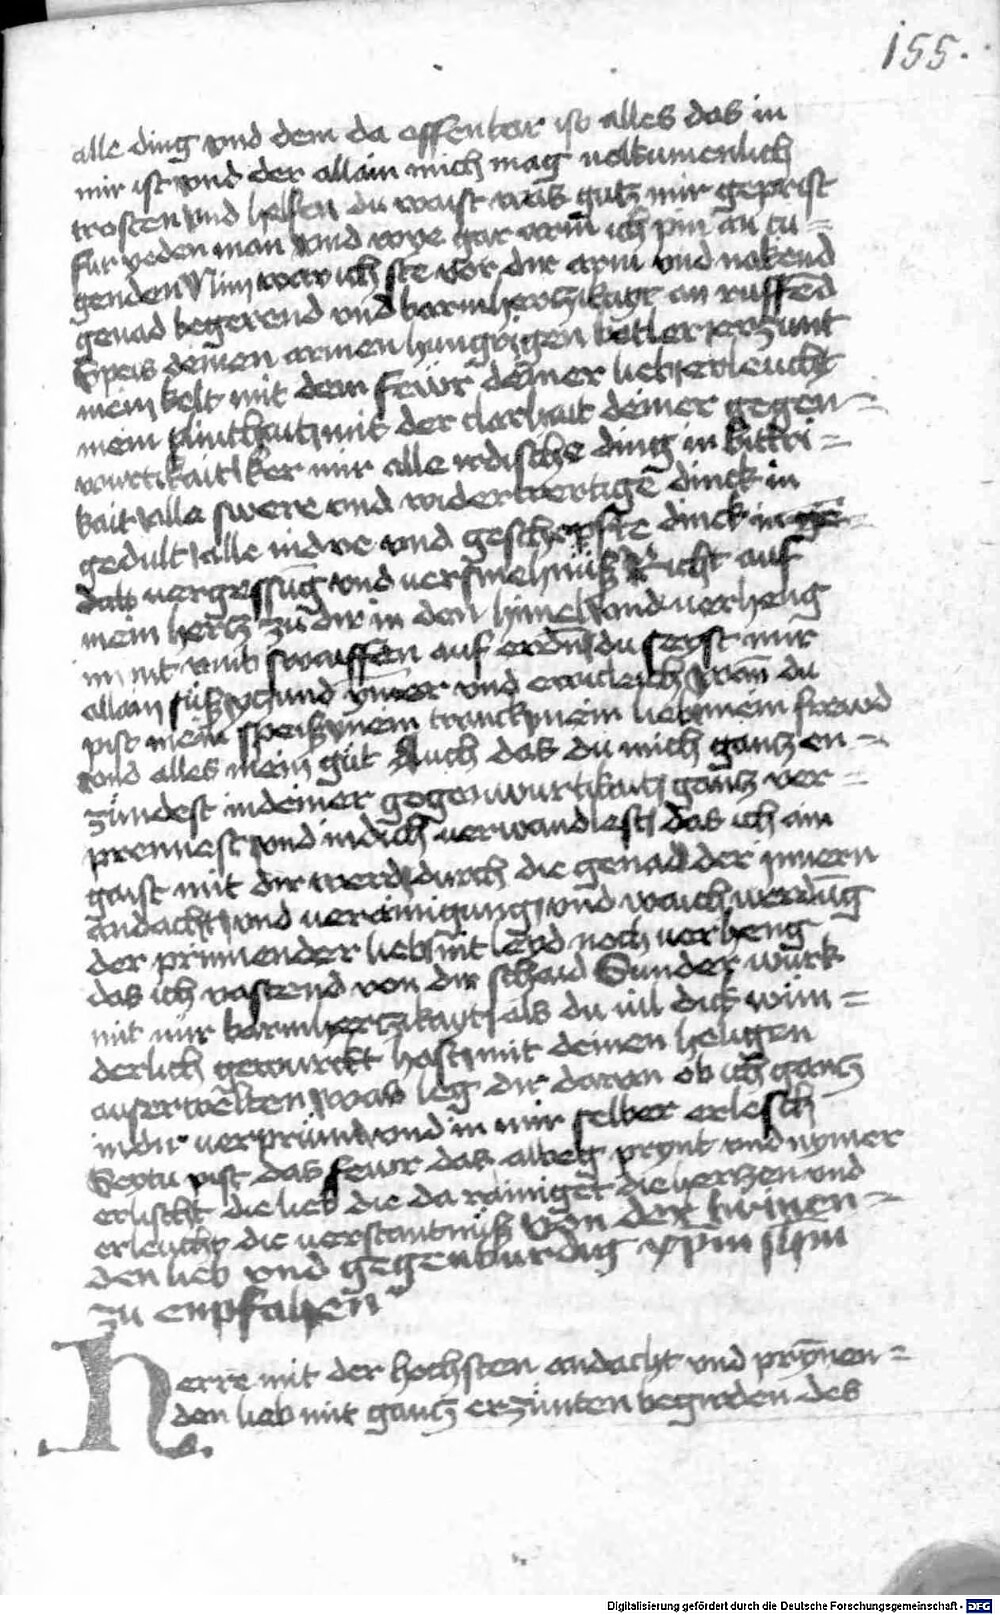 155.
alle ding vnd dem da offenbar ist alles das in
mir ist vnd der allain mich mag volkumenlich
trosten vnd helfen du waist was gutz mir geprist
fur yeden man vnd wye gar arm ich pin an tu=
genden Nim war ich ste vor dir arm vnd nakend
genad begerend vnd barmhertzikayt an ruffend
Speis deinen armen hungrigen betler erzunt
mein kelt mit dem fewr deiner lieb erleucht
mein plinthait mit der clarhait deiner gegen=
wurtikait ker mir alle irdische ding in bittri=
kait alle swere vnd widerwertige dinck in
gedult alle nidre vnd geschepfte dinck in
vergessung vnd versmehnuß Richt auf
mein hertz zu dir in den himel vnd verheng
mir nit vmb swaiffen auf erden du seyst mir
allain süß ytzund ymer vnd ewicleich wan du
pist mein speiß mein tranck mein lieb mein frewd
vnd alles mein gut Auch das du mich gantz en=
zündest in deiner gegenwurtikait gantz ver=
prennest vnd in dich verwandlest das ich ain
gaist mit dir werd durch die genad der innern
andacht vnd verainigung vnd waichwerdung
der prinnender lieb nit leyd noch verheng
das ich vastend von dir schaid Sunder würk
mit mir barmhertzikayt als du vil dick wun=
derlich gewurckt hast mit deinen heligen
auserwelten was leg dir daran ob ich gantz
in dir verprünn vnd in mir selber erlesch
Seytu pist das fewr das albeg prynt vnd nymer
erlischt die lieb die da rainiget die hertzen vnd
erleucht die verstantnuß Von der brinen=
den lieb vnd gegenburdig xpm ihm
zu enpfahen
Herre mit der hochsten andacht vnd prynen=
den lieb mit gantz erzünten begirden des
Digitalisierung gefördert durch die Deutsche Forschungsgemeinschaft - DFG